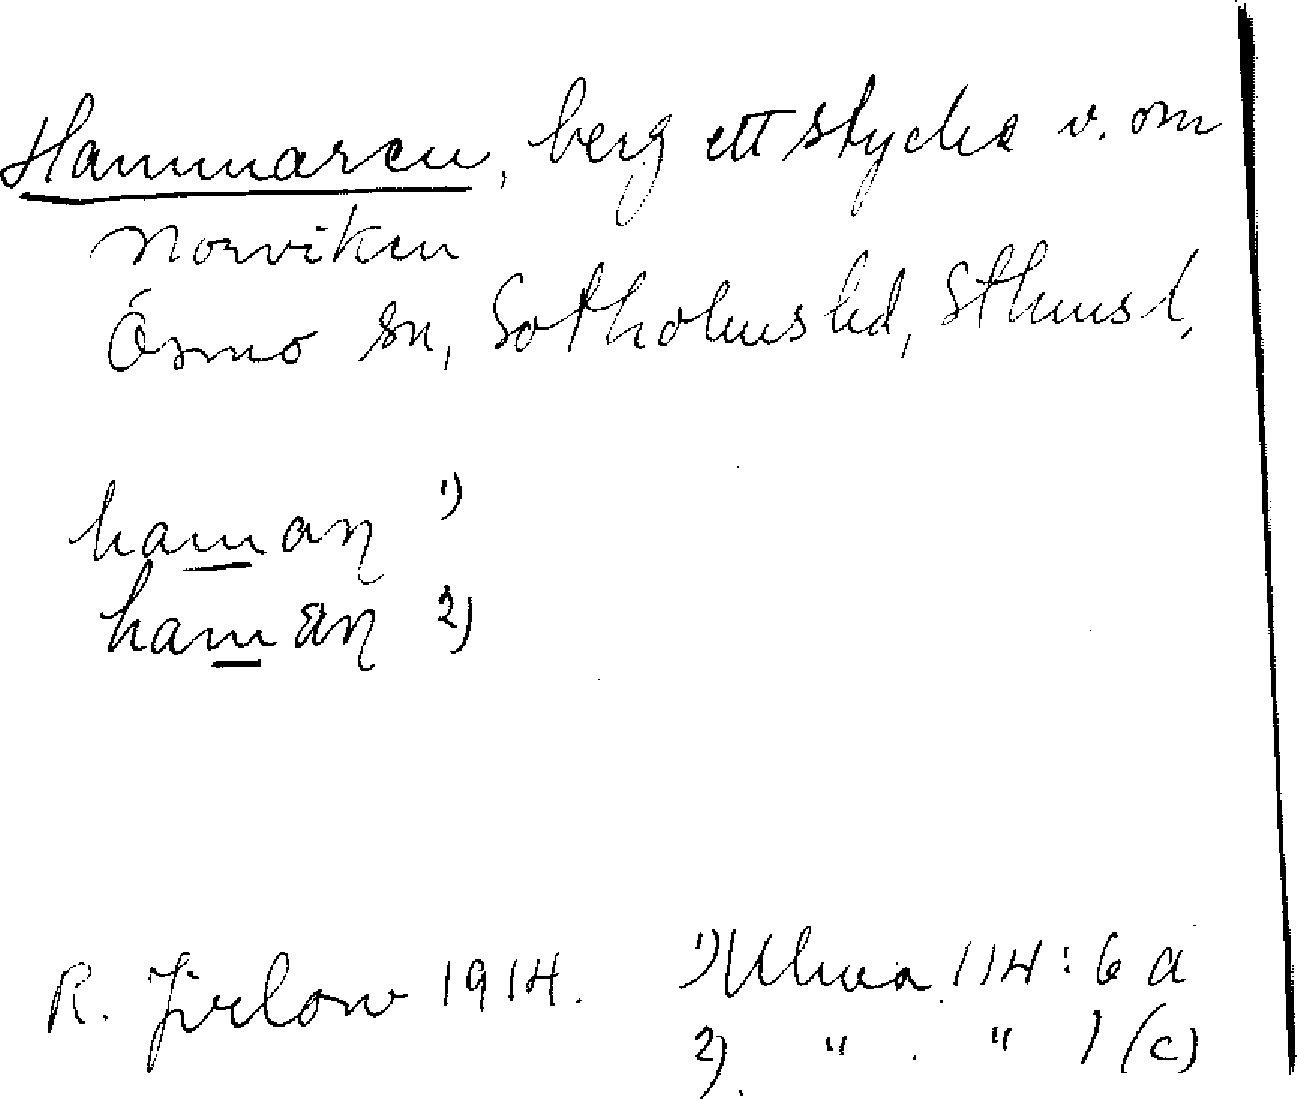 Hammaren, berg ett stycke v. om
Norviken
Ösmo sn, Sotholms hd, Sthms l.
hamaɳ 1)
hamæɳ 2)
R. Jirlow 1914. 1) 114: 6 a
2) " . " 1 (c)